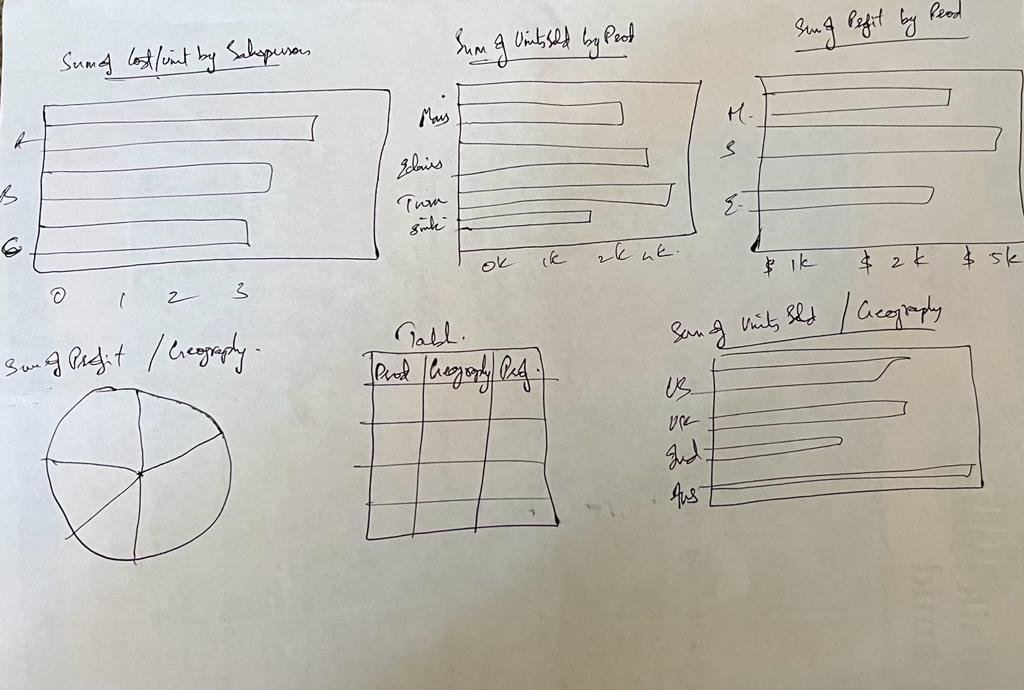 Sum of Cost/unit by Salesperson
A
B
C
0 1 2 3
Sum of Units Sld by Prod
Mars
Eclairs
Twin
0K 1K 2K 4K.
Sum of Profit by Prod
M.
S
E.
$ 1K $ 2K $ 5K
Sum of Profit / Geography.
Tabl.
Prod Geography Prof.
Sum of Units Sld / Geography
US
UK
Ind
Aus